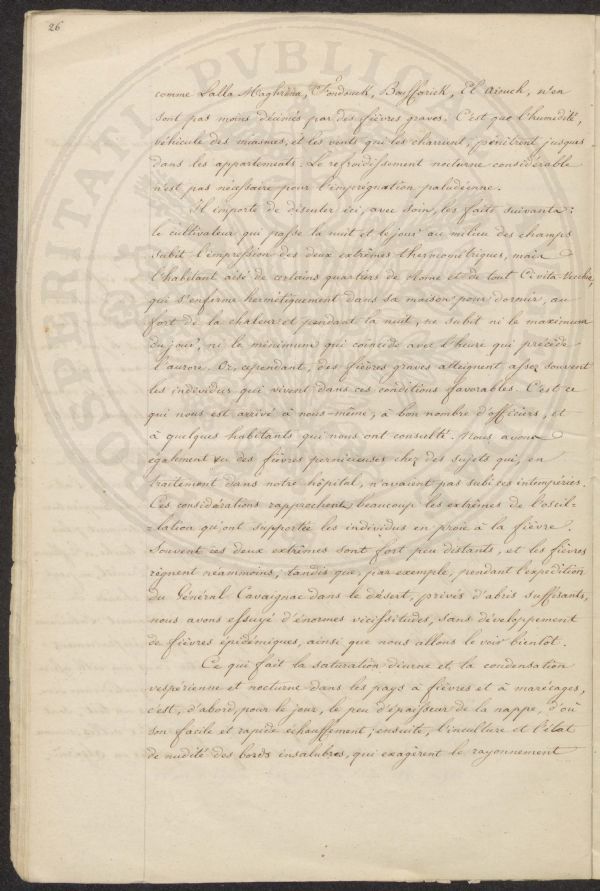 26
comme Lalla Maghrina, Fondouck, Bouffarick, El Aiouch, n'en
sont pas moins décimés par des fièvres graves. C'est que l'humidité,
véhicule des miasmes, et les vents qui les charrient, pénètrent jusques
dans les appartements. Le refroidissement nocturne considérable
n'est pas nécessaire pour l'imprégnation paludéenne.
Il importe de discuter ici, avec soin, les faits suivants:
le cultivateur qui passe la nuit et le jour au milieu des champs
subit l'impression des deux extrêmes thermométriques, mais
l'habitant aisé de certains quartiers de Rome et de tout Civita-Vecchia,
qui s'enferme hermétiquement dans sa maison pour dormir, au
fort de la chaleur et pendant la nuit, ne subit ni le maximum
du jour, ni le minimum qui coïncide avec l'heure qui précède
l'aurore. Or, cependant, des fièvres graves atteignent assez souvent
les individus qui vivent dans ces conditions favorables. C'est ce
qui nous est arrivé à nous-même, à bon nombre d'officiers, et
à quelques habitants qui nous ont consulté. Nous avons
également vu des fièvres pernicieuses chez des sujets qui, en
traitement dans notre hôpital, n'avaient pas subi ces intempéries.
Ces considérations rapprochent beaucoup les extrêmes de l'oscil=
=lation qu'ont supportée les individus en proie à la fièvre.
Souvent ces deux extrêmes sont fort peu distants, et les fièvres
règnent néammoins; tandis que, par exemple, pendant l'expédition
du Général Cavaignac dans le désert, privés d'abris suffisants,
nous avons essuyé d'énormes vicissitudes, sans développement
de fièvres épidémiques, ainsi que nous allons le voir bientôt.
Ce qui fait la saturation diurne et la condensation
vespérienne et nocturne dans les pays à fièvres et à marécages,
c'est, d'abord, pour le jour, le peu d'épaisseur de la nappe, d'où
son facile et rapide échauffement; ensuite, l'inculture et l'état
de nudité des bords insalubres, qui exagèrent le rayonnement